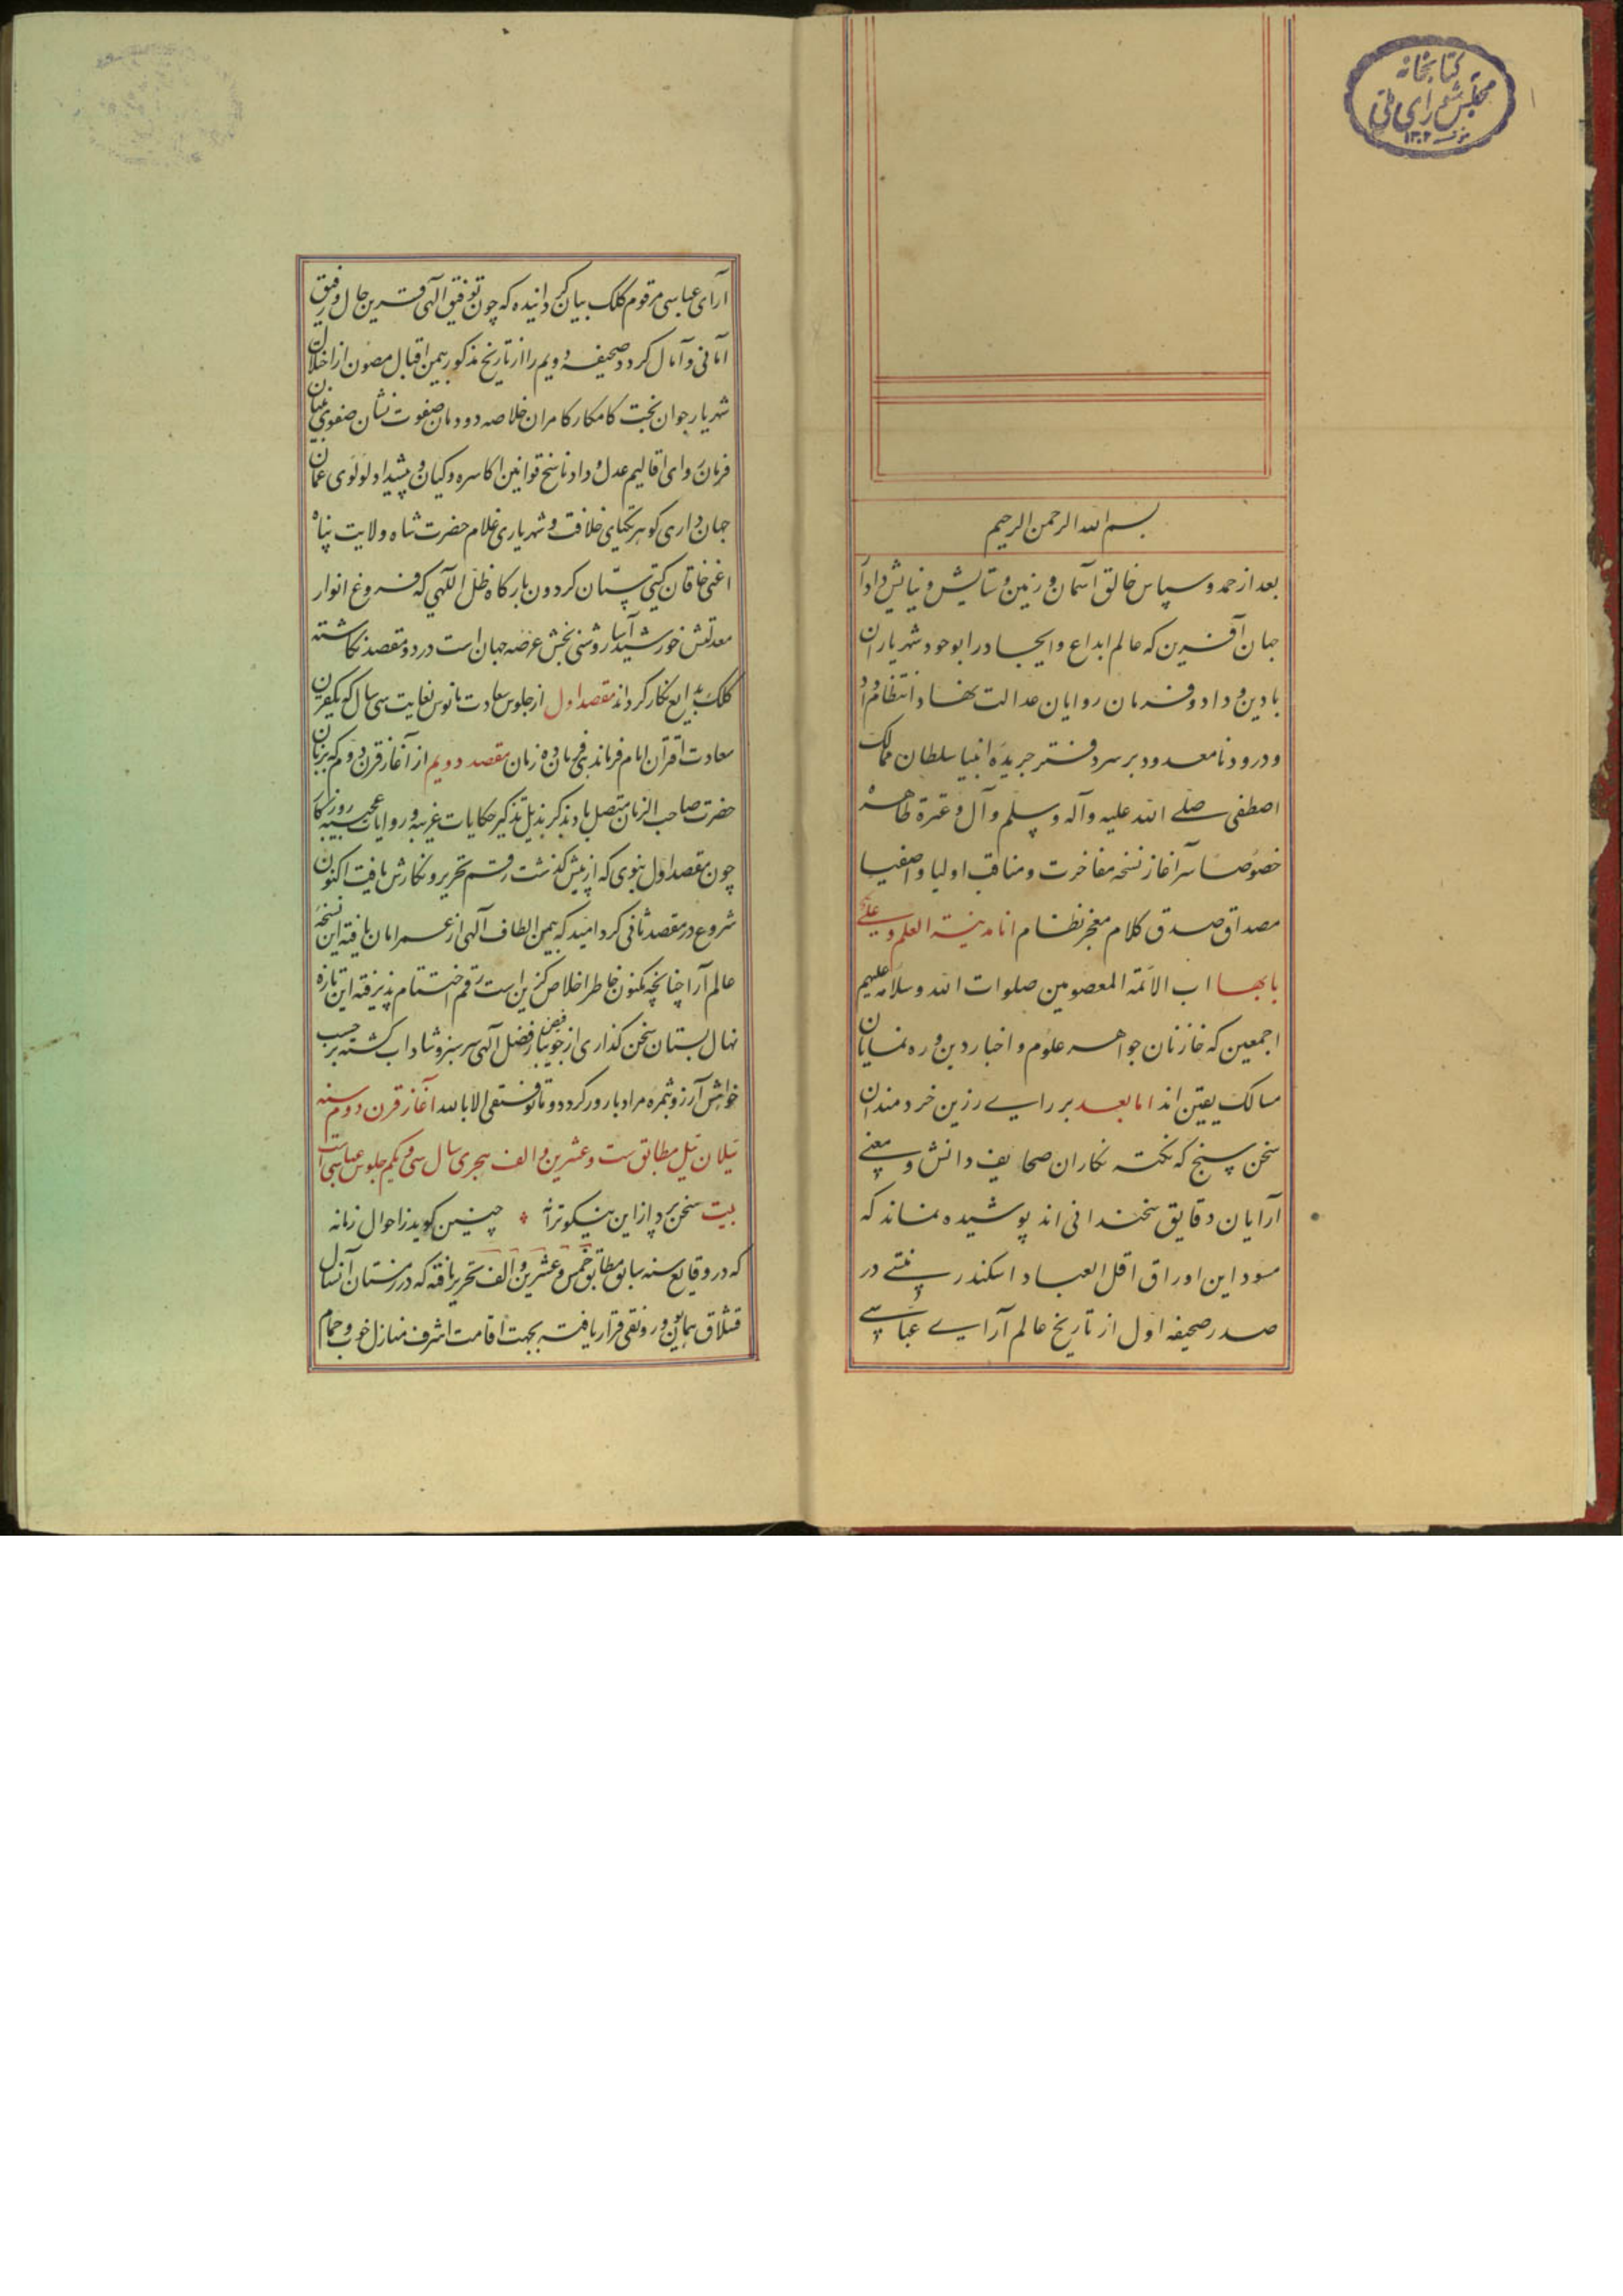 کتابخانه
مجلس شورای ملی
۱۳۰۲
بسم الله الرحمن الرحیم
بعد از حمد و سپاس خالق آسمان و زمین و ستایش و نیایش داد آ
جهان آفرین که عالم ابداع و ایجاد را بوجود شهریاران
با دین و داد و فرمان روایان عدالت نهاد انتظام داد
و درود نامعدود بر سر دفتر جریده انبیا سلطان ممالک
اصطفی صلی الله علیه وآله وسلم وآل و عترة طاهره
خصوصا سرآغاز نسخه مفاخرت و مناقب اولیا و اصفیا
مصداق صدق کلام معجز نظام انا مدینة العلم و علی
بابها اب الائمة المعصومین صلوات الله وسلامه علیهم
اجمعین که خازنان جواهر علوم و اخبار دین و ره نمایان
مسالک یقین اند اما بعد بر رای رزین خردمندان
سخن سنج که نکته نکاران صحایف دانش و معنی
آرایان دقایق سخندانی اند پوشیده نماند که
مسود این اوراق اقل العباد اسکندر منشی در
صدر صحیفه اول از تاریخ عالم آرای عباسی
آرای عباسی مرقوم کلک بیان کردانیده که چون توفیق الهی قرین حال و رفیق
امانی و آمال کردد صحیفه دویم را از تاریخ مذکور بیمن اقبال مصون از اختلال
شهریار جوان بخت کامکار کامران خلاصه دودمان صفوت نشان صفوی بنیان
فرمان روای اقالیم عدل و داد ناسخ قوانین اکاسره و کیان و پیشداد لولوی عمان
جهان داری کوهر یکتای خلافت و شهریاری غلام حضرت شاه ولایت پناه
اعنی خاقان کیتی ستان کردون بارکاه ظل اللهی که فروغ انوار
معدلتش خورشید آسا روشنی بخش عرصه جهان است در دو مقصد نکاشته
کلک بدایع نکار کرداند مقصد اول از جلوس سعادت مانوس لغایت سی سال که یکقرن
سعادت اقتران امام فرمانده زمین و زمان مقصد دویم از آغاز قرن دوم که بزمان
حضرت صاحب الزمان متصل باد بذکر بذیل تذکیر حکایات غریبه و روایات عجیبه روزکار
چون مقصد اول بنوی که از پیش کذشت رقم تحریر و نکارش یافت اکنون
شروع در مقصد ثانی کرد امید که بیمن الطاف الهی از عمر امان یافته این نسخه
عالم آرا چنانچه مکنون خاطر اخلاص کزین است رقم اختتام پذیرفته این تازه
نهال بستان سخن کذاری از جویبار فیض فضل الهی سرسبز و شاداب کشته بر حسب
خواهش آرزو ثمره مراد بارور کردد و ما توفیقی الا بالله آغاز قرن دوم سنه
ئیلان ئیل مطابق ست و عشرین و الف هجری سال سی و یکم جلوس عباسی است
بیت سخن پرداز این نیکو ترانه چنین کوید ز احوال زمانه
که در وقایع سنه سابق مطابق خمس و عشرین و الف تحریر یافته که در زمستان آنسال
قشلاق همایون و رونقی قرار یافته بجهت اقامت اشرف منازل خوب و حمام